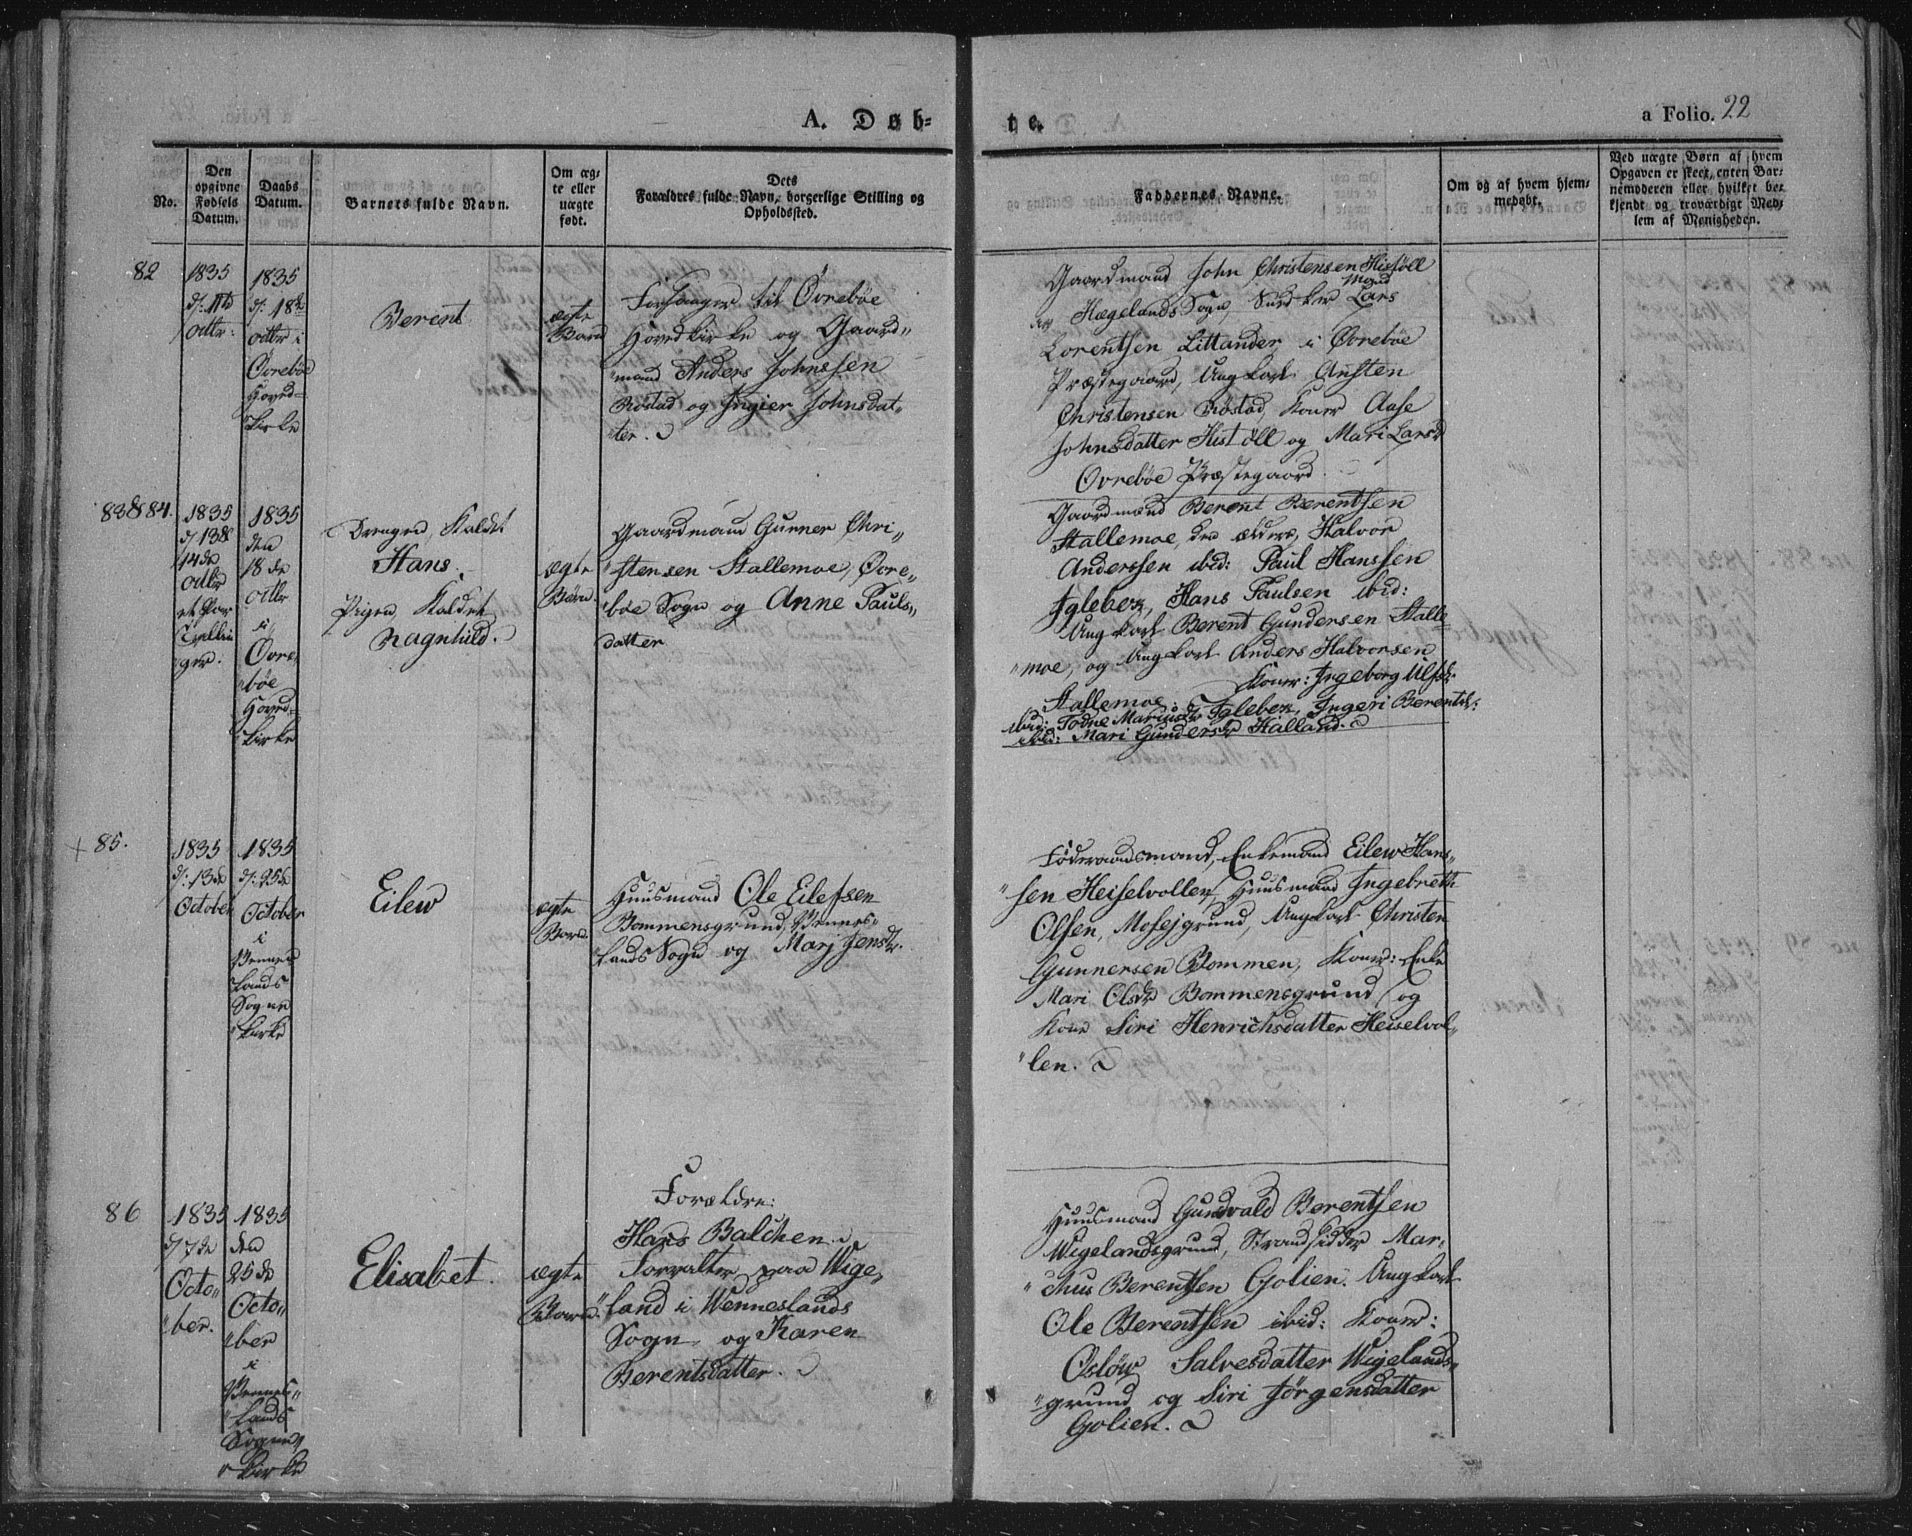 A. Døb-
te.
a Folio. 22
No.
Den opgivne Fødsels Datum.
Daabs Datum.
Barnets fulde Navn.
Om ægte eller uægte født.
Dets Forældres fulde Navn, borgerlige Stilling og Opholdssted.
Faddernes Navne.
Om og af hvem hjemmedøbt.
Ved uægte Børn af hvem Opgaven er skeet, enten Barnemoderen eller hvilket bekjendt og troværdigt Medlem af Menigheden.
82
1835
d: 11te
Octbr:
1835
d: 18de
Octbr i
Øvrebøe
Hoved-
kirke
Berent
ægte
Barn
Forsanger til Øvrebøe
Hovedkirke og Gaard„
„mand Anders Johnssen
Røstad og Ingier Johnsdat„
„ter.
Gaardmand John Christensen Histøll
Hægelands Sogn, Lars
Lorentsen Littander i Øvrebøe
Præstegaard, Ungkarl Austen
Christensen Røstad, Koner Aase
Johnsdatter Histøll og Mari Larsdr
Øvrebøe Præstegaard.
83 & 84.
1835
d: 13 &
14de
Octbr
et Par
Tvillin
ger.
1835
den
18de
Octbr
i
Øvre„
„bøe
Hoved-
kirke
Drengen, Kaldet
Hans.
Pigen Kaldet
Ragnhild.
ægte
Børn
Gaardmand Gunner Chri„
„stensen Stallemoe, Øvre„
„bøe Sogn og Anne Pauls„
datter
Gaardmænd Berent Berentsen
Stallemoe, den ældere, Halvor
Anderssen ibid: Paul Hanssen
Iglebek, Hans Paulsen ibid:
Ungkarl Berent Gundersen Stalle
„moe, og Ungkarl Anders Halvorsen
Stallemoe, Koner: Ingeborg Ulfsdr
ibid: Todne Mariusdr Iglebek, Ingeri Berentsd:
ibid: Mari Gundersdr Halland.
+ 85.
1835
d: 13de
October
1835
d: 25de
October
i
Vennes
lands
Sogne
kirke
Eilew
ægte
Barn.
Huusmand Ole Eilefsen
Bommensgrund, Vennes„
„lands Sogn og Marj Jensdr.
Føderaadsmand, Enkemand Eilew Hans„
„sen Heiselvollen, Huusmand Ingebreth
Olsen, Mosejgrund, Ungkarl Christen
Gunnersen Bommen, Koner: Enke
Mari Olsdr Bommensgrund og
Kone Siri Henrichsdatter Heiselvol„
„len.
86
1835
d 7de
Octo„
„ber.
1835
den
25de
Octo„
„ber
i
Vennes„
„lands
Sogne„
„kirke
Elisabet.
ægte
Barn.
Forældre:
Hans Balchen
Forvalter paa Wige„
„land i Wenneslands
Sogn og Karen
Berentsdatter.
Huusmand Gundvald Berentsen
Wigelandsgrund, Strandsidder Mar„
„chus Berentsen Golien. Ungkarl
Ole Berentsen ibid: Koner:
Osløw Salvesdatter Wigelands„
„grund og Siri Jørgensdatter
Golien.